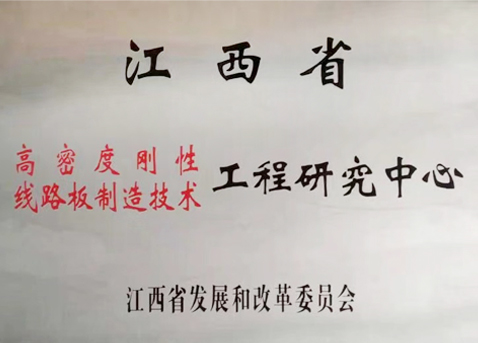 江西省
高密度刚性
线路板制造技术
工程研究中心
江西省发展和改革委员会